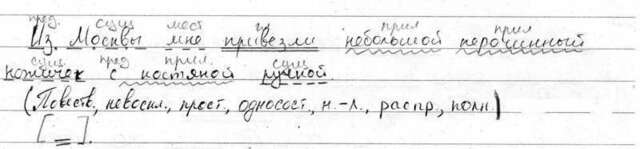 пред. сущ. мест. гл. прил. прил.
Из Москвы мне привезли небольшой перочинный
сущ. пред. прил. сущ.
ножичек с костяной ручкой
(Повеств., невоскл., прост., односост., н.-л., распр., полн.)
[ ].